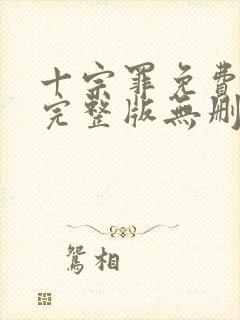 十宗罪免費
完整版無刪
鴛相